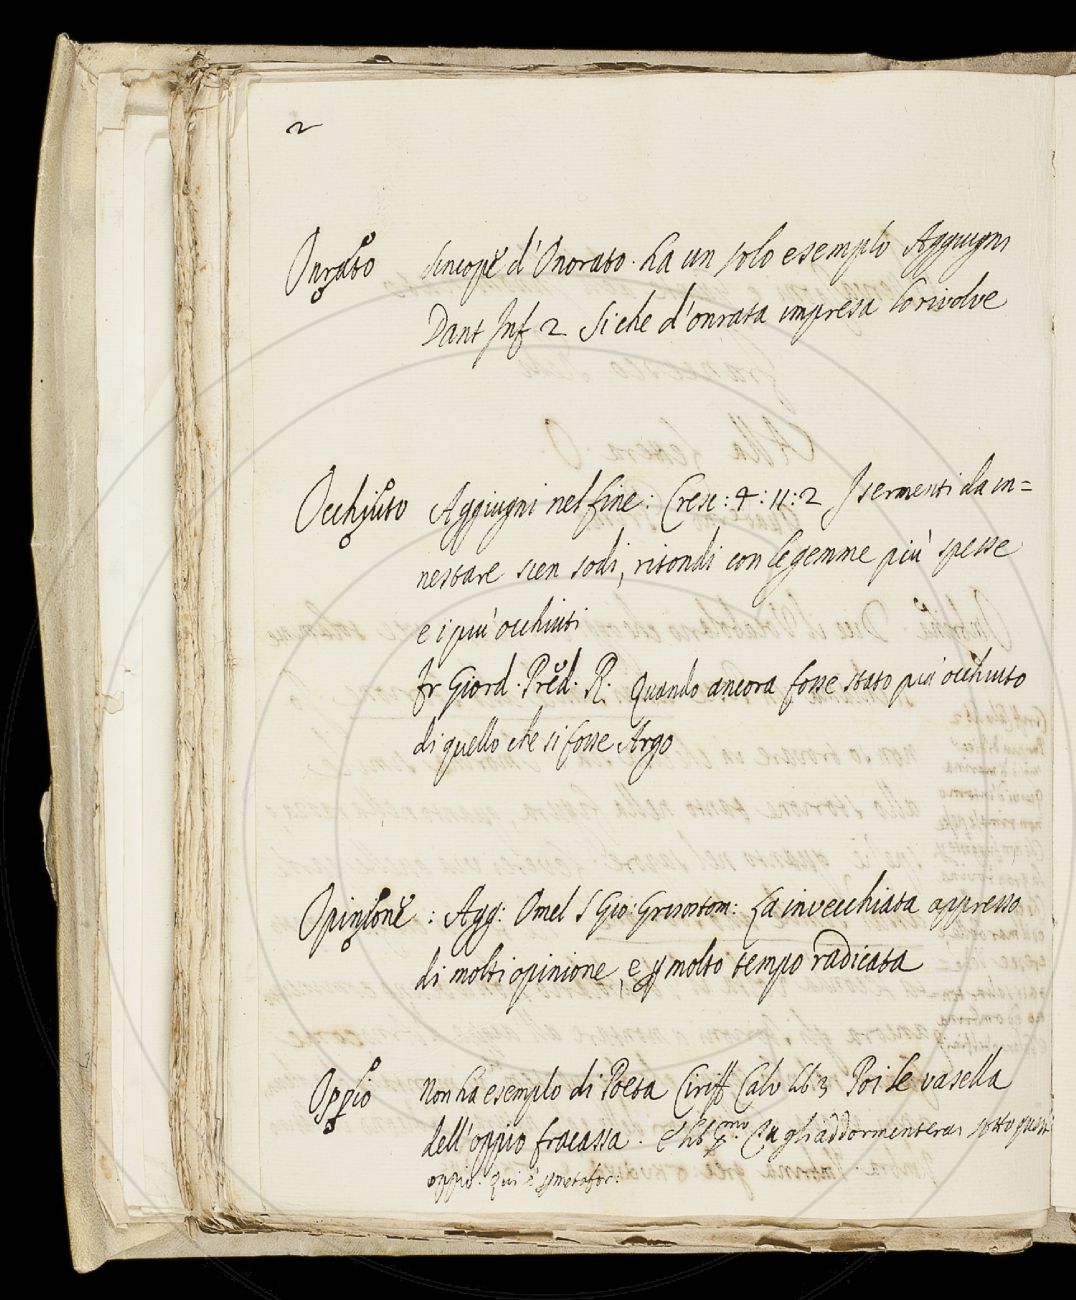 2
Onrato Sincope d'Onorato. ha un solo esempio Aggiugni
Dant Inf 2 Si che d'onrata impresa lo rivolve
Occhiuto Aggiugni nel fine: Cresc: 4: 11: 2 I sermenti da in=
nestare sien sodi, ritondi con le gemme più spesse
e i più occhiuti
Fr Giord. Pred. R. Quando ancora fosse stato più occhiuto
di quello che si fosse Argo
Opinione : Agg: Omel S Gio: Grisostom: La invecchiata appresso
di molti opinione, e p molto tempo radicata
Oppio Non ha esemplo di Poeta Ciriff Calv lib 3 Poi le vasella
dell'oppio fracassa. E lib pmo. Tu gli addormenterai sotto quest
oppio. qui è p metafor: